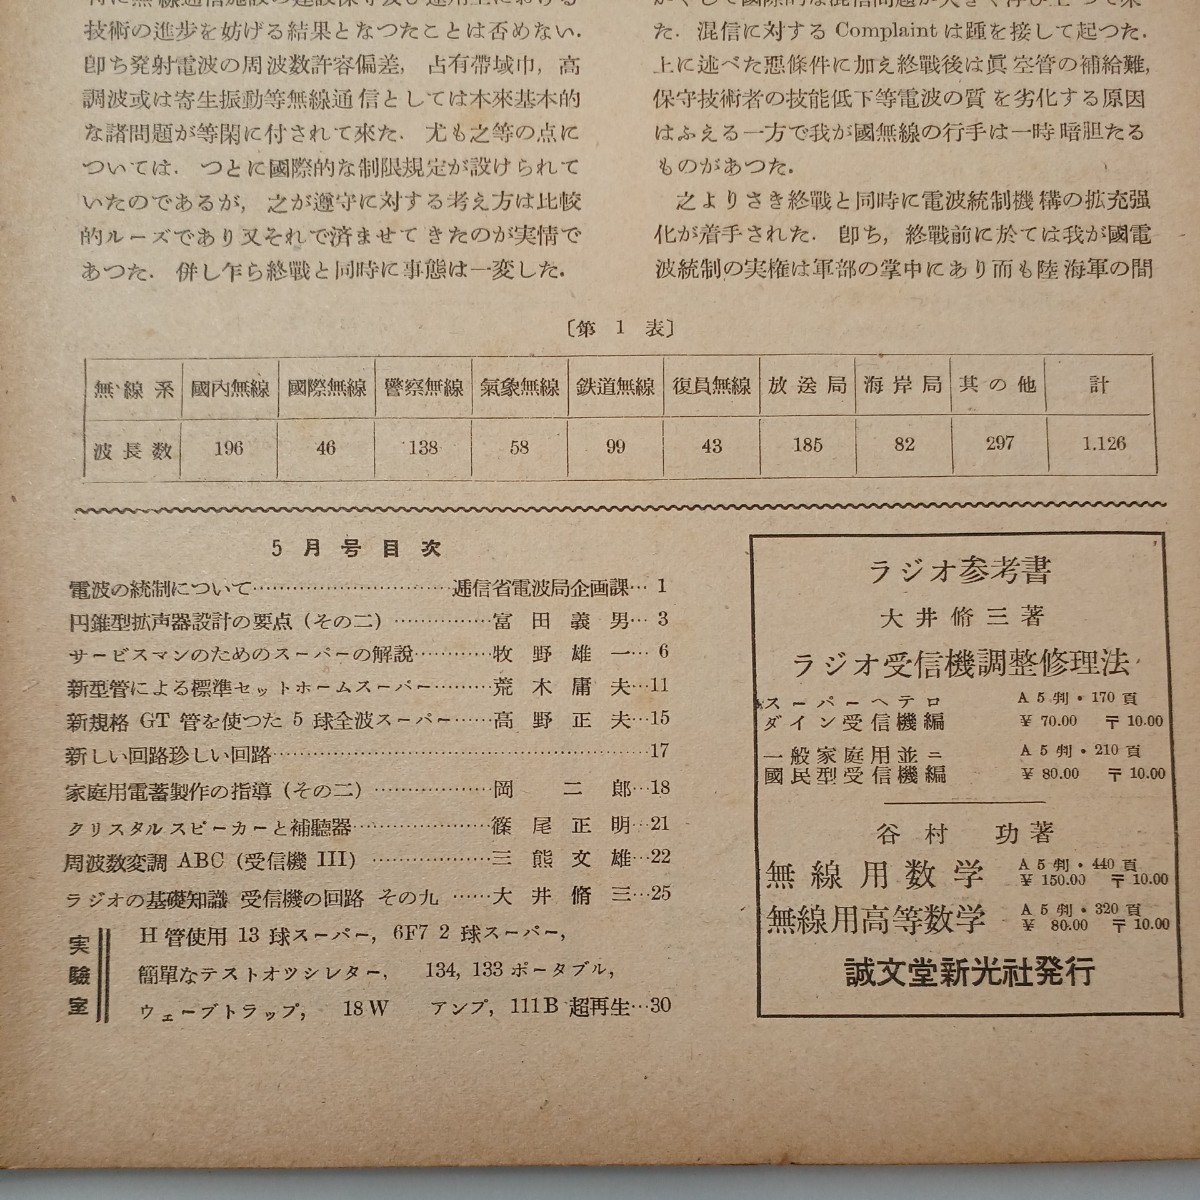 技術の進歩を妨げる結果となつたことは否めない.
卽ち発射電波の周波数許容偏差, 占有帶域巾, 高
調波或は寄生振動等無線通信としては本來基本的
な諸問題が等閑に付されて來た. 尤も之等の点に
ついては. つとに國際的な制限規定が設けられて
いたのであるが, 之が遵守に対する考え方は比較
的ルーズであり又それで済ませてきたのが実情で
あつた. 併し乍ら終戰と同時に事態は一変した.
た. 混信に対する Complaint は踵を接して起つた.
上に述べた悪條件に加え終戰後は眞空管の補給難,
保守技術者の技能低下等電波の質を劣化する原因
はふえる一方で我が國無線の行手は一時暗胆たる
ものがあつた.
之よりさき終戰と同時に電波統制機構の拡充强
化が着手された. 卽ち, 終戰前に於ては我が國電
波統制の実権は軍部の掌中にあり而も陸海軍の間
〔第 1 表〕
無線系 國內無線 國際無線 警察無線 氣象無線 鉄道無線 復員無線 放送局 海岸局 其の他 計
波長数 196 46 138 58 99 43 185 82 297 1.126
5月号目次
電波の統制について……………逓信省電波局企画課…1
円錐型拡声器設計の要点 (その二) ……………富田義男…3
サービスマンのためのスーパーの解説…………牧野雄一…6
新型管による標準セットホームスーパー………荒木庸夫…11
新規格 GT 管を使つた 5 球全波スーパー……高野正夫…15
新しい回路珍しい回路……………………17
家庭用電蓄製作の指導 (その二) ………………岡二郎…18
クリスタルスピーカーと補聽器………………篠尾正明…21
周波数変調 ABC (受信機 III) ………………三熊文雄…22
ラジオの基礎知識 受信機の回路 その九 ……大井脩三…25
実驗室
H 管使用 13 球スーパー, 6F7 2 球スーパー,
簡單なテストオツシレター, 134, 133 ポータブル,
ウェーブトラップ, 18W アンプ, 111B 超再生…30
ラジオ参考書
大井脩三著
ラジオ受信機調整修理法
スーパーヘテロ
ダイン受信機編
A5判・170頁
¥ 70.00 〒10.00
一般家庭用並ニ
國民型受信機編
A5判・210頁
¥ 80.00 〒10.00
谷村 功著
無線用数学
A5判・440頁
¥ 150.00 〒10.00
無線用高等数学
A5判・320頁
¥ 80.00 〒10.00
誠文堂新光社発行